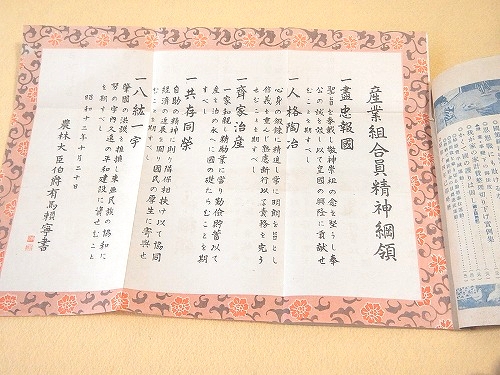 産業組合員精神綱領
一盡忠報國
聖旨を奉戴し敬神崇祖の念を堅うし奉
公の誠を效し以て皇國の興隆に貢獻せ
むことを期すべし
一人格陶冶
心身の鍛錬に精進し常に明朗を旨とし
信義を重んじ熟慮斷行以て責務を完う
せむことを期すべし
一齊家治産
一家和親し精勤業に勞り勤儉貯蓄以て
産を治め永へに國の礎たらむことを期
すべし
一共存同榮
自助の精神に則り隣保相扶け以て協同
經濟の進展を圖り國民の厚生に寄與せ
むことを期すべし
一八紘一宇
肇國の洪謨を推擴し東亜民族の協和に
努め宇内交通の平和建設に資せむこと
を期すべし
昭和十二年十月二十日
農林大臣伯爵有馬頼寧書